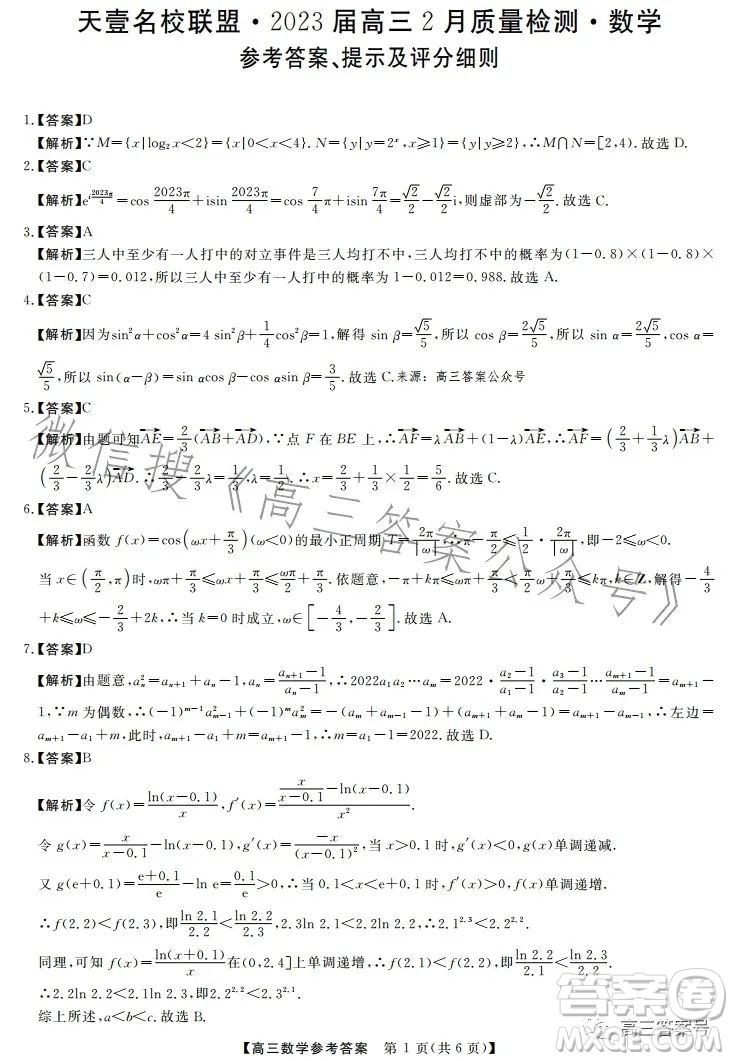 天壹名校联盟·2023届高三2月质量检测·数学
参考答案、提示及评分细则
1.【答案】D
【解析】∵M={x|log₂x<2}={x|0<x<4}. N={y|y=2ˣ,x⩾1}={y|y⩾2},∴M⋂N=[2,4).故选 D.
2.【答案】C
【解析】e^(i2023π/4)=cos 2023π/4+isin 2023π/4=cos 7/4 π+isin 7π/4=√2/2-√2/2 i,则虚部为-√2/2.故选 C.
3.【答案】A
【解析】三人中至少有一人打中的对立事件是三人均打不中,三人均打不中的概率为(1-0.8)×(1-0.8)×
(1-0.7)=0.012,所以三人中至少有一人打中的概率为1-0.012=0.988.故选 A.
4.【答案】C
【解析】因为sin²α+cos²α=4 sin²β+1/4 cos²β=1,解得 sin β=√5/5,所以 cos β=2√5/5,所以 sin α=2√5/5,cos α=
√5/5,所以 sin(α-β)=sin αcos β-cos αsin β=3/5.故选 C.来源:高三答案公众号
5.【答案】C
【解析】由题可知AE=2/3(AB+AD),∵点 F 在 BE 上,∴AF=λAB+(1-λ)AE,∴AF=(2/3+1/3 λ)AB+
(2/3-2/3 λ)AD.∴2/3-2/3 λ=1/3,λ=1/2.∴x=2/3+1/3×1/2=5/6.故选 C.
6.【答案】A
【解析】函数 f(x)=cos(ωx+π/3)(ω<0)的最小正周期 T=2π/|ω|,∴π-π/2⩽1/2·2π/|ω|,即-2⩽ω<0.
当 x∈(π/2,π)时,ωπ+π/3⩽ωx+π/3⩽ωπ/2+π/3.依题意,-π+kπ⩽ωπ+π/3<ωπ/2+π/3⩽kπ,k∈Z,解得-4/3
+k⩽ω⩽-2/3+2k,∴当 k=0 时成立,ω∈[-4/3,-2/3].故选 A.
7.【答案】D
【解析】由题意,aₙ²=aₙ₊₁+aₙ-1,aₙ=(aₙ₊₁-1)/(aₙ-1),∴2022a₁a₂…aₘ=2022·(a₂-1)/(a₁-1)·(a₃-1)/(a₂-1)…(aₘ₊₁-1)/(aₘ-1)=aₘ₊₁-
1.∵m 为偶数,∴(-1)ᵐ⁻¹a²ₘ₋₁+(-1)ᵐa²ₘ=-(aₘ+aₘ₋₁-1)+(aₘ₊₁+aₘ-1)=aₘ₊₁-aₘ₋₁,∴左边=
aₘ₊₁-a₁+m,此时,a₁-m=1.故 m=a₁-1=2022.故选 D.
8.【答案】B
【解析】令 f(x)=ln(x-0.1)/x,f′(x)=(x/(x-0.1)-ln(x-0.1))/x².
令 g(x)=x/(x-0.1)-ln(x-0.1),g′(x)=-x/(x-0.1)²,当 x>0.1 时,g′(x)<0,g(x)单调递减.
又 g(e+0.1)=(e+0.1)/e-ln e=0.1/e>0,∴当 0.1<x⩽e+0.1 时,g(x)>0,f(x)单调递增.
∴f(2.2)<f(2.3),即ln 2.1/2.2<ln 2.2/2.3,2.3ln 2.1<2.2ln 2.2,∴2.1^2.3<2.2^2.2.
同理,可知ln(x+0.1)/x在(0,2.4]上单调递增,∴f(2.1)<f(2.2),即ln 2.2/2.1<ln 2.3/2.2.
∴2.2ln 2.2<2.1ln 2.3,∴2.2^2.2<2.3^2.1.
综上所述,a<b<c.故选 B.
【高三数学参考答案 第 1 页(共 6 页)】
微信搜《高三答案公众号》
高三答案号
答案圈
MXQE.COM